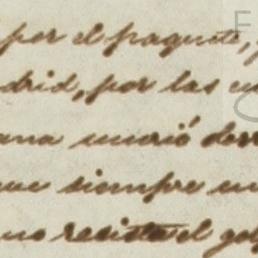 por el paquete,
drid, por las
ana murió
que siempre
no resiste el gol